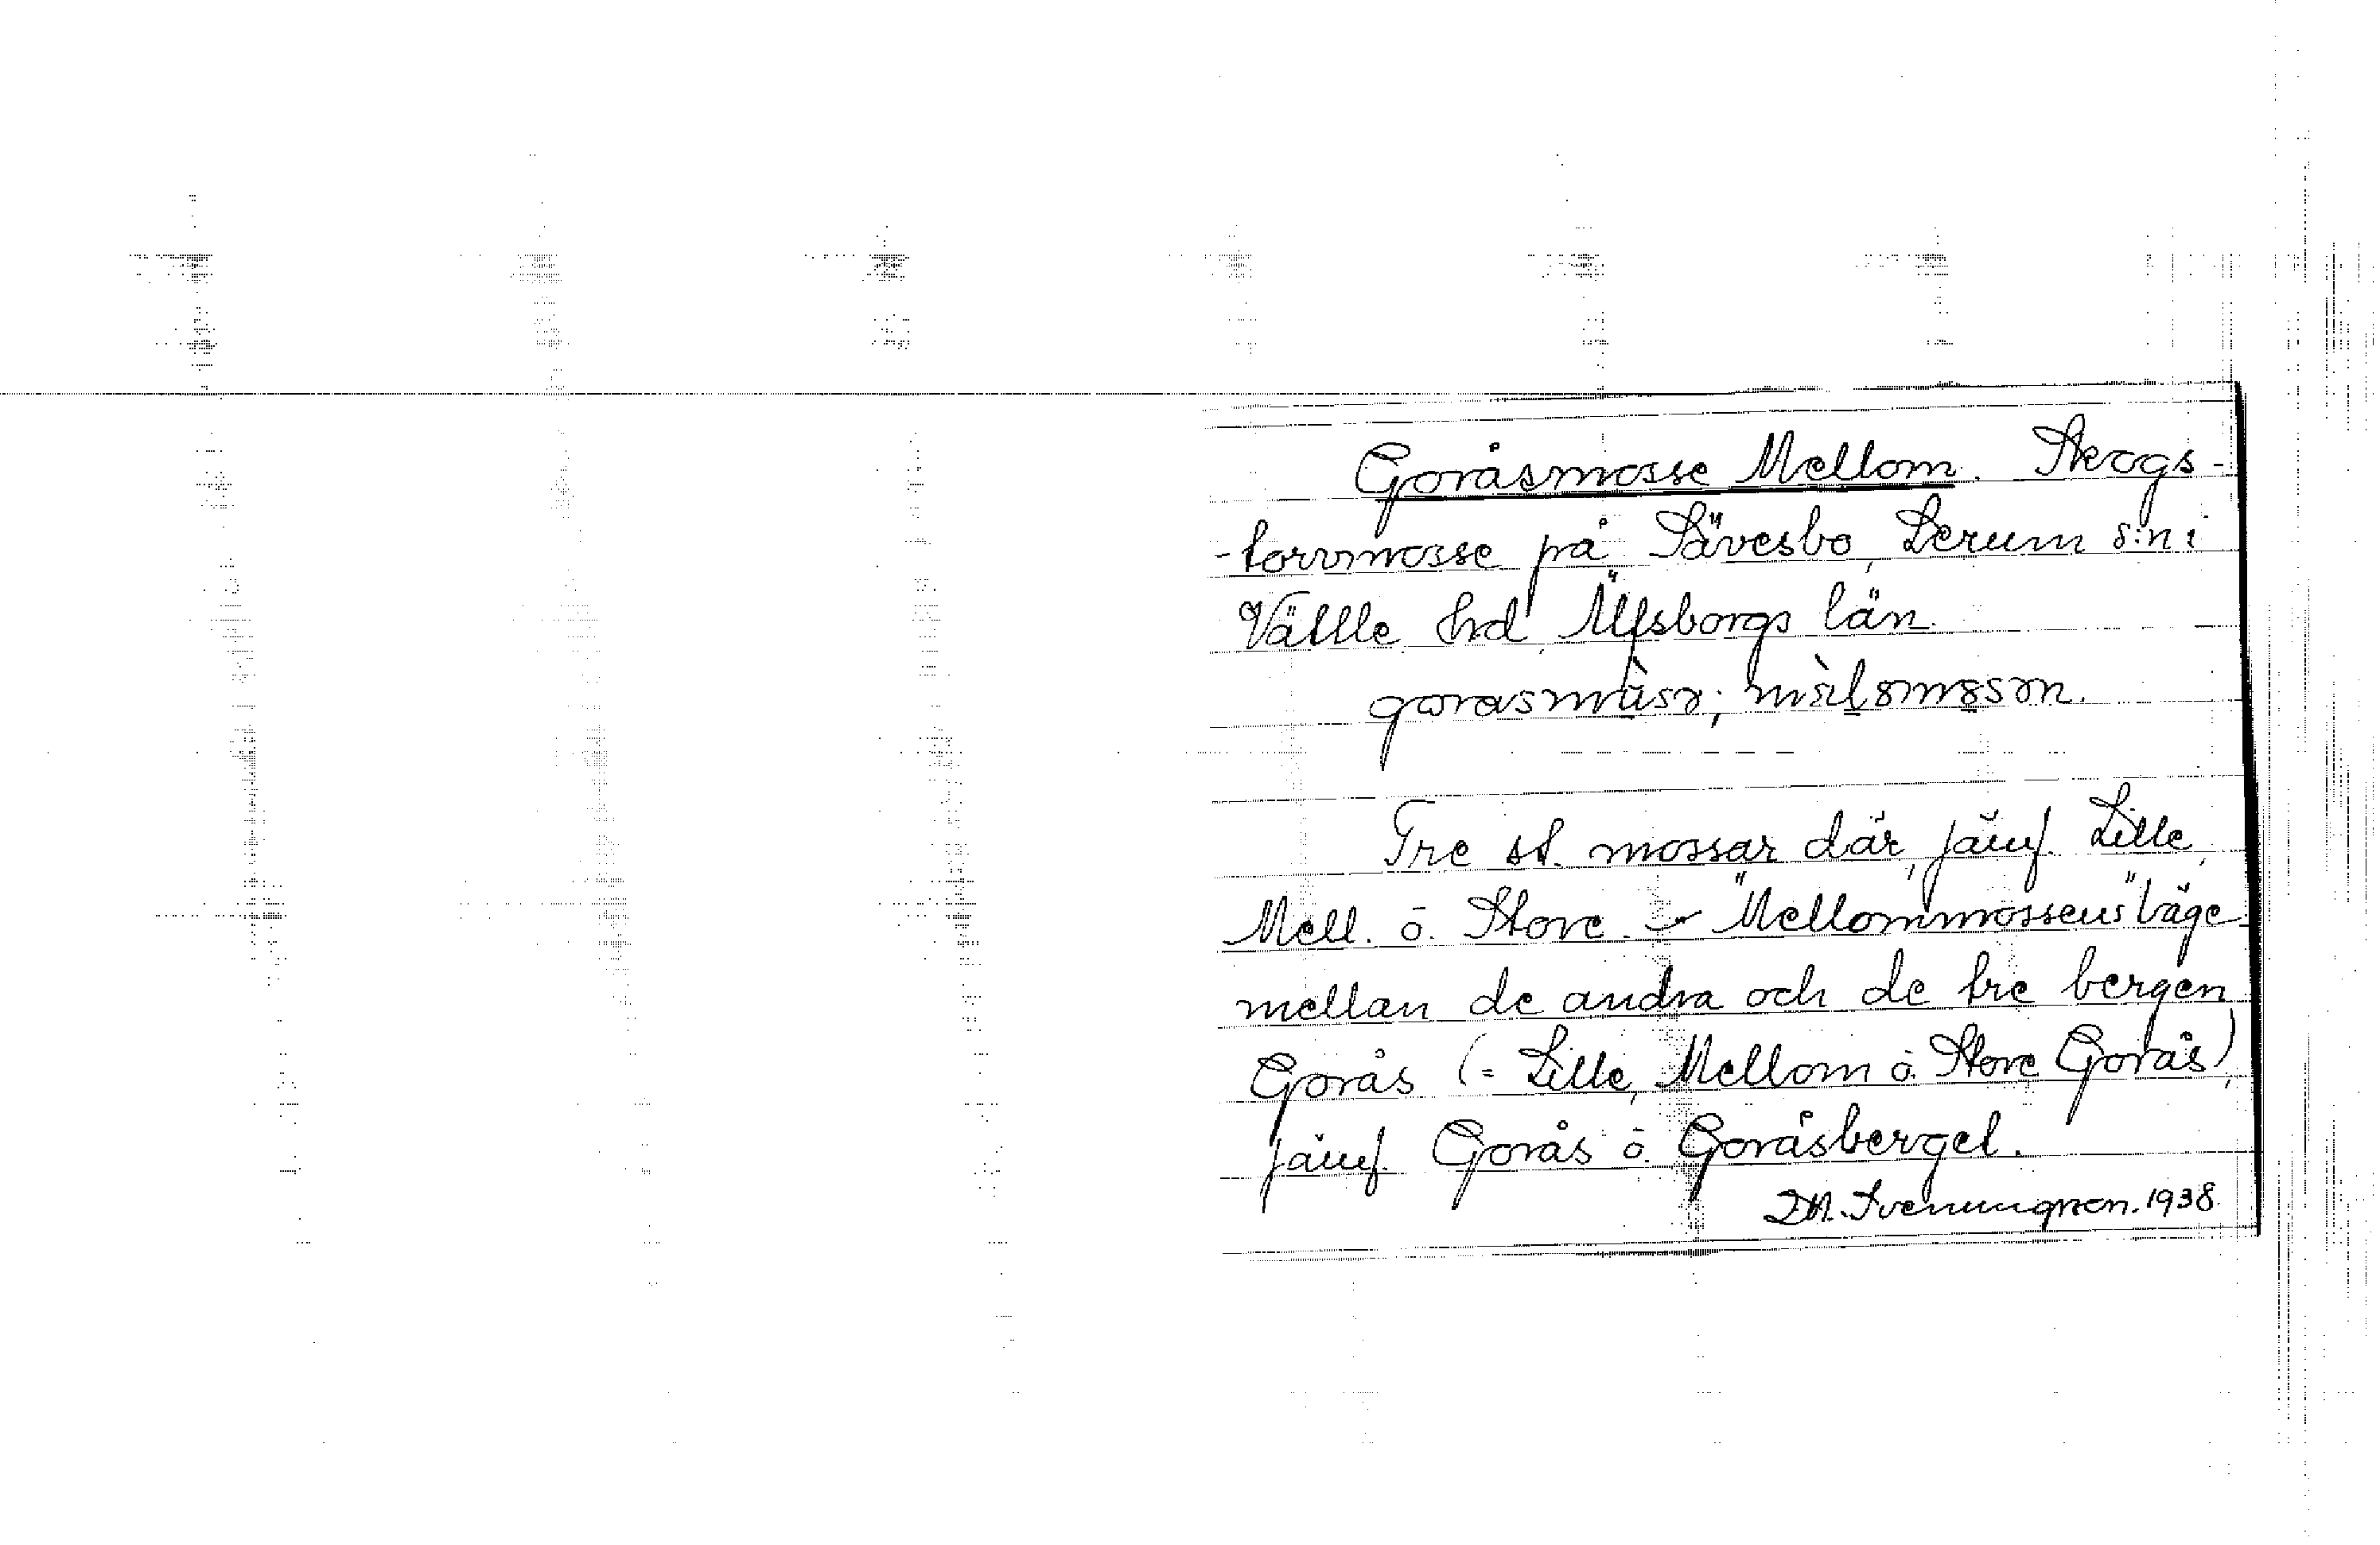 Goråsmosse Mellom. Skogs-
-torvmosse på Sävesbo, Lerum s:n i
Vättle hrd, Älfsborgs län.
Tre st. mossar där, jämf. Lille,
Mell. o. Store. - "Mellommossens" läge
mellan de andra och de tre bergen
Gorås (= Lille, Mellom o. Store Gorås),
jämf. Gorås o. Goråsberget.
1938